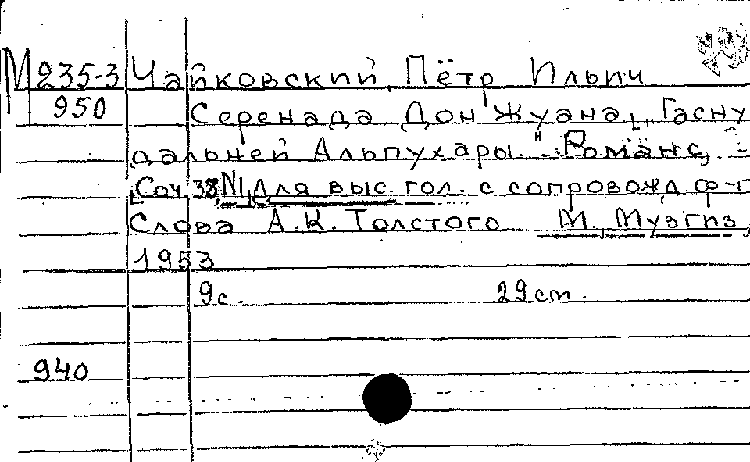 М235-3 Чайковский, Пётр Ильич
950 Серенада Дон Жуана. „Гасну
дальней Альпухары..." Романс,
[Соч. 38 N1] для выс. гол. с сопровожд ф-п
Слова А.К. Толстого М., Музгиз,
1953
9с. 29 cm.
940